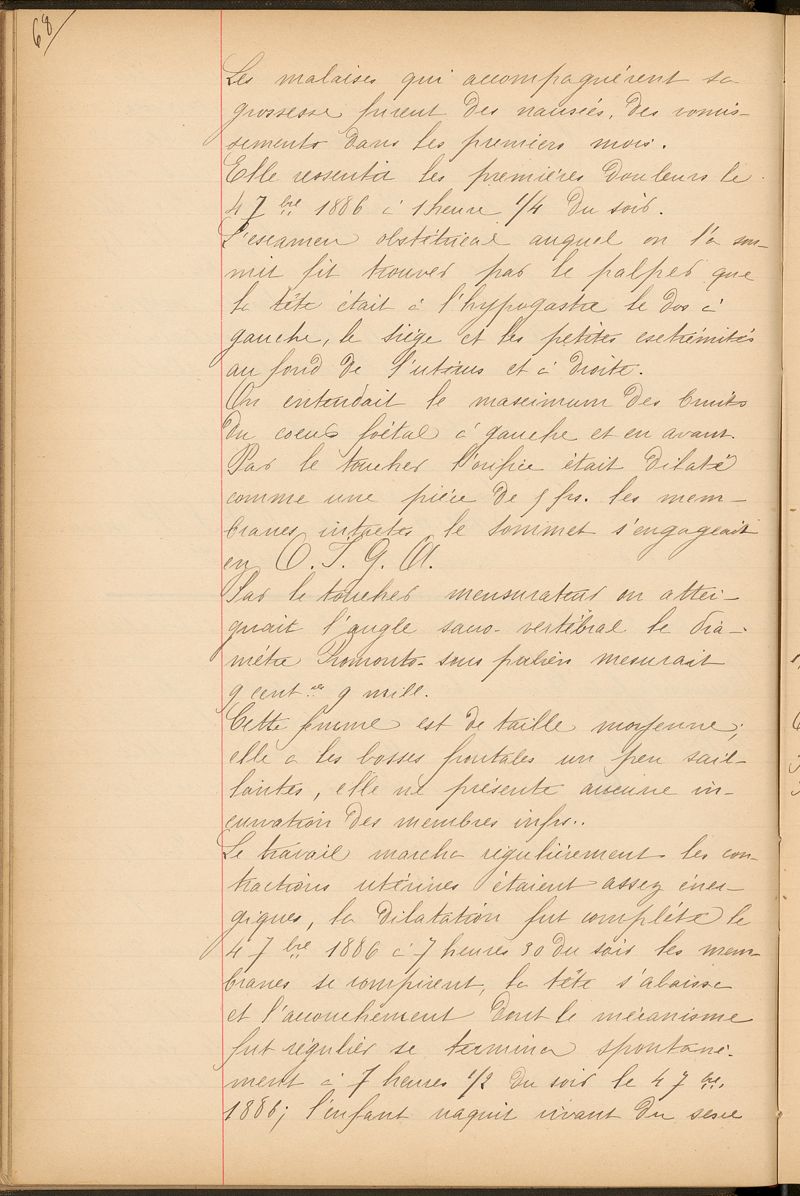 68
Les malaises qui accompagnèrent sa
grossesse furent des nausées, des vomis-
sements dans les premiers mois.
Elle ressentit les premières douleurs le
4 7bre 1886 à 1 heure 1/4 du soir.
L'examen obstétrical auquel on l'a sou-
mit fit trouver par le palper que
la tête était à l'hypogastre le dos à
gauche, le siège et les petites extrémités
au fond de l'utérus et à droite.
On entendait le maximum des bruits
du coeur foetal à gauche et en avant.
Par le toucher l'orifice était dilaté
comme une pièce de 5 frs. les mem-
branes intactes le sommet s'engageait
en O. I. G. A.
Par le toucher mensurateur on attei-
gnait l'angle sacro-vertébral le dia-
mètre Promonto-sous pubien mesurait
9 cent.res 9 mill.
Cette femme est de taille moyenne;
elle a les bosses frontales un peu sail-
lantes, elle ne présente aucune in-
curvation des membres infrs..
Le travail marcha régulièrement les con-
tractions utérines étaient assez éner-
giques, la dilatation fut complète le
4 7bre 1886 à 7 heures 30 du soir les mem-
branes se rompirent, la tête s'abaissa
et l'accouchement dont le mécanisme
fut régulier se termina spontané-
ment à 7 heures 1/2 du soir le 4 7bre.
1886; l'enfant naquit vivant du sexe